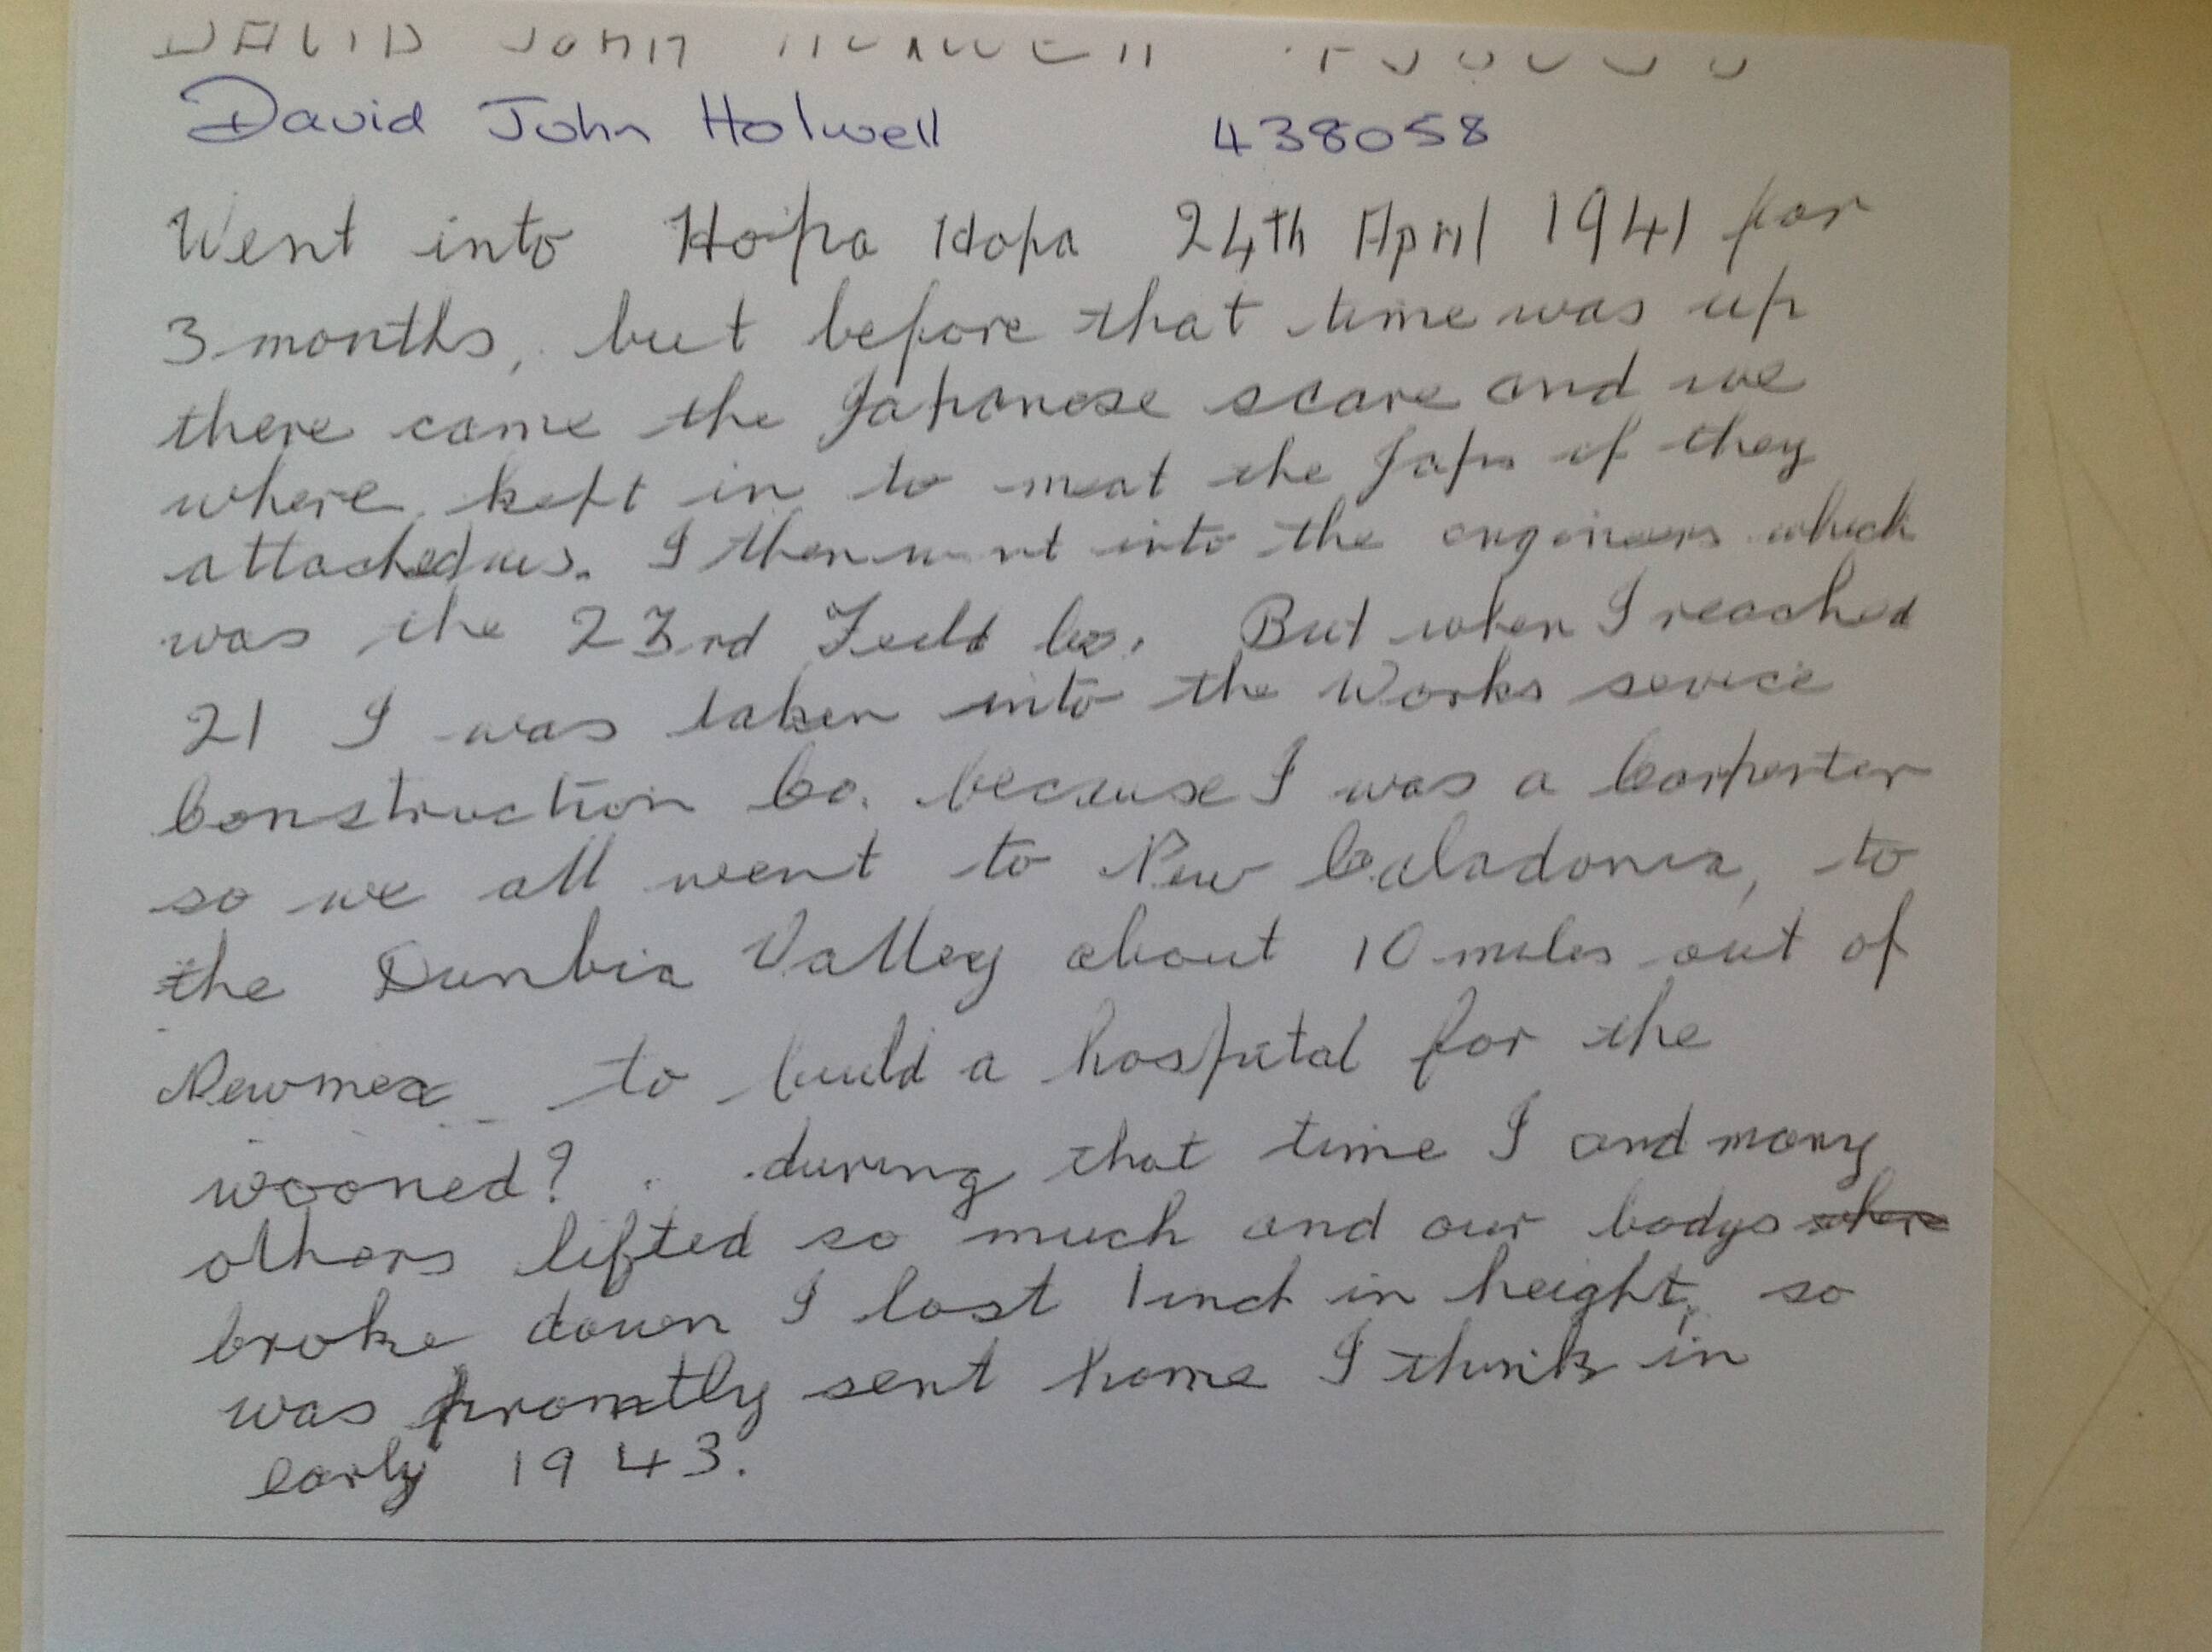 DAVID JOHN HOLWELL
David John Holwell 438058
Went into Hopa Hopa 24th April 1941 for
3 months, but before that time was up
there came the Japanese scare and we
where kept in to meat the Japs if they
attached us. I then went into the engineers which
was the 23rd Feild Co. But when I reached
21 I was taken into the Works sevice
Construction Co. because I was a Carpenter
so we all went to New Caladonia, to
the Dunbia Valley about 10 miles out of
Newmea to build a hospital for the
wooned? during that time I and many
others lifted so much and our bodys where
broke down I lost 1 inch in height, so
was promtly sent home I think in
early 1943.